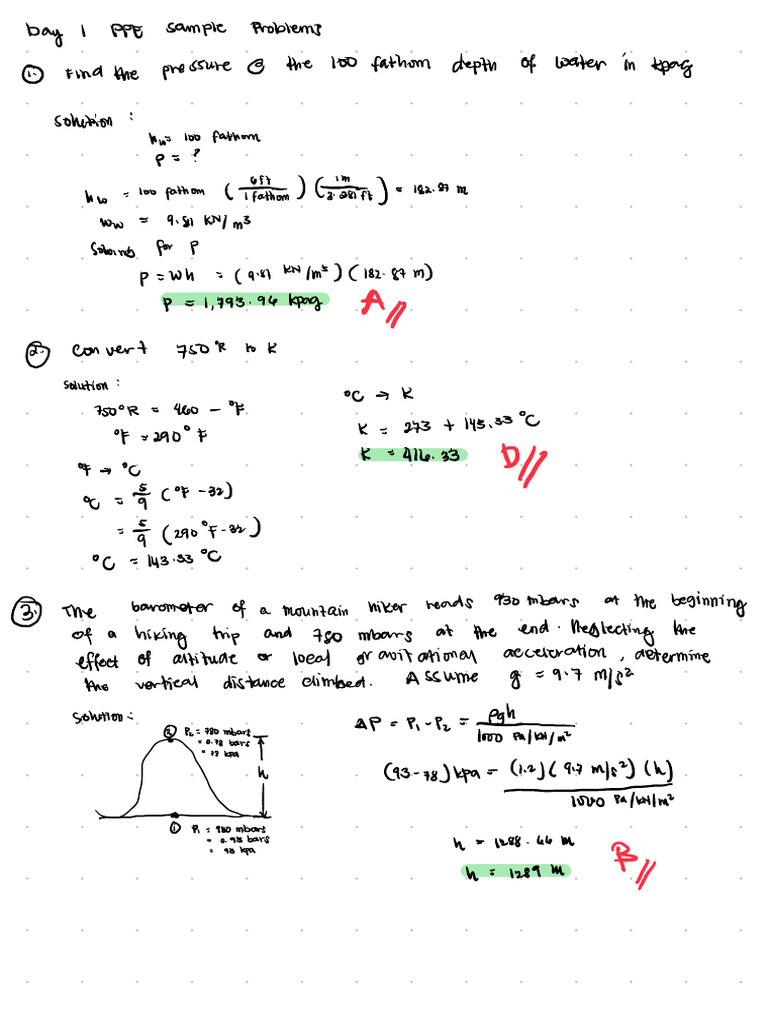 Day 1 PPE Sample Problems
1. Find the pressure @ the 100 fathom depth of water in kpag
Solution :
hw = 100 fathom
P = ?
hw = 100 fathom (6ft / 1 fathom) (1m / 3.281ft) = 182.87 m
ww = 9.81 KN/m3
Solving for P
P = wh = (9.81 KN/m3) (182.87 m)
P = 1,793.96 kpag A//
2. Convert 750°R to K
Solution :
750°R = 460 - °F
°F = 290° F
°F → °C
°C = 5/9 (°F - 32)
= 5/9 (290°F - 32)
°C = 143.33 °C
°C → K
K = 273 + 143.33 °C
K = 416.33 D//
3. The barometer of a mountain hiker reads 930 mbars at the beginning
of a hiking trip and 780 mbars at the end. Neglecting the
effect of altitude or local gravitational acceleration, determine
the vertical distance climbed. Assume g = 9.7 m/s2
Solution :
2 P2 = 780 mbars
= 0.78 bars
= 78 kpa
h
1 P1 = 930 mbars
= 0.93 bars
= 93 kpa
ΔP = P1 - P2 = ρgh / 1000 Pa/KN/m2
(93 - 78) kpa = (1.2) (9.7 m/s2) (h) / 1000 Pa/KN/m2
h = 1288.66 m
h = 1289 m B//